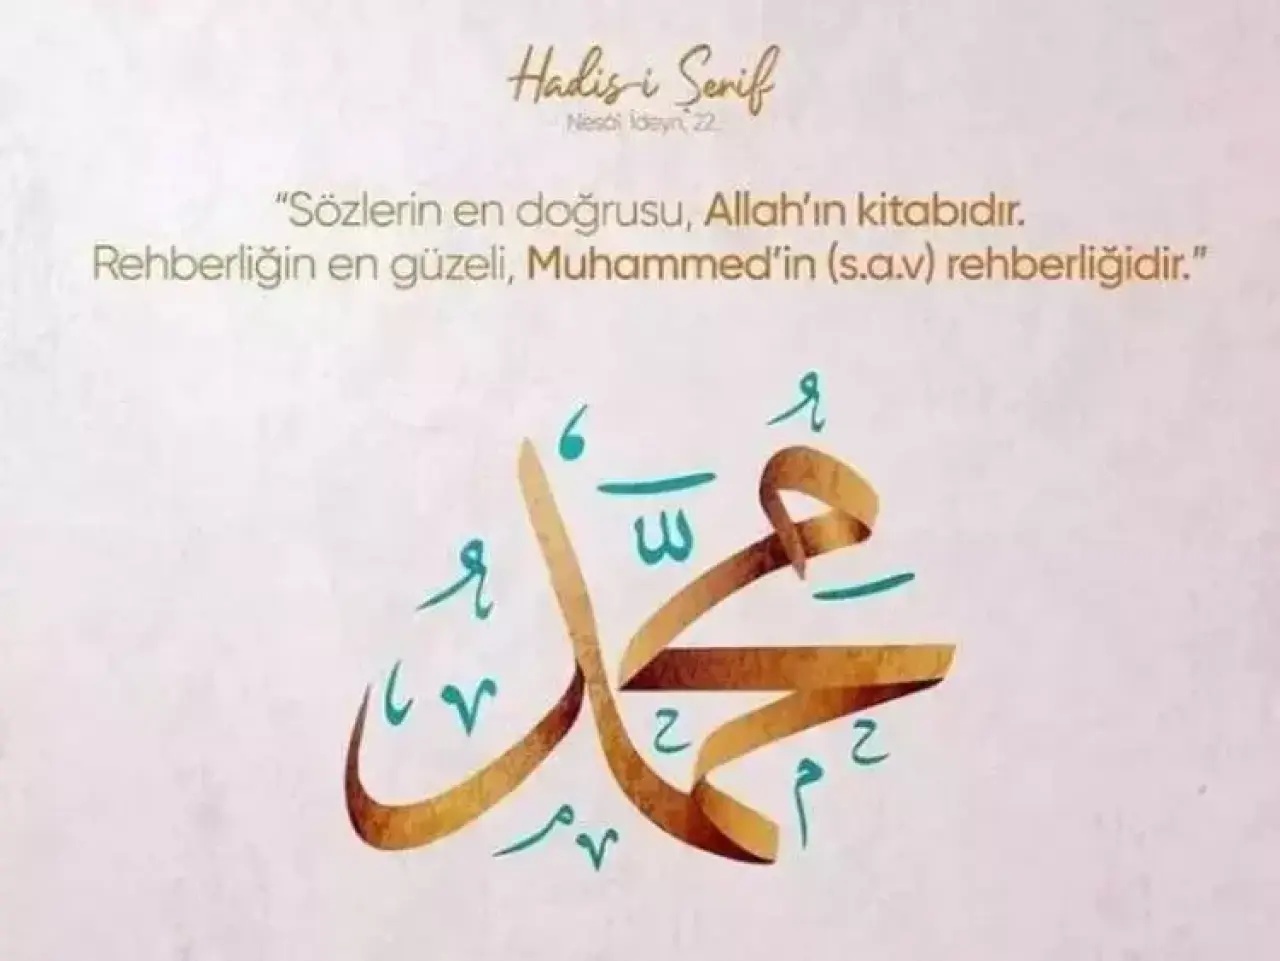 Hadis-i Şerif
Nesâî, Îdeyn, 22.
“Sözlerin en doğrusu, Allah’ın kitabıdır.
Rehberliğin en güzeli, Muhammed’in (s.a.v) rehberliğidir.”
محمد